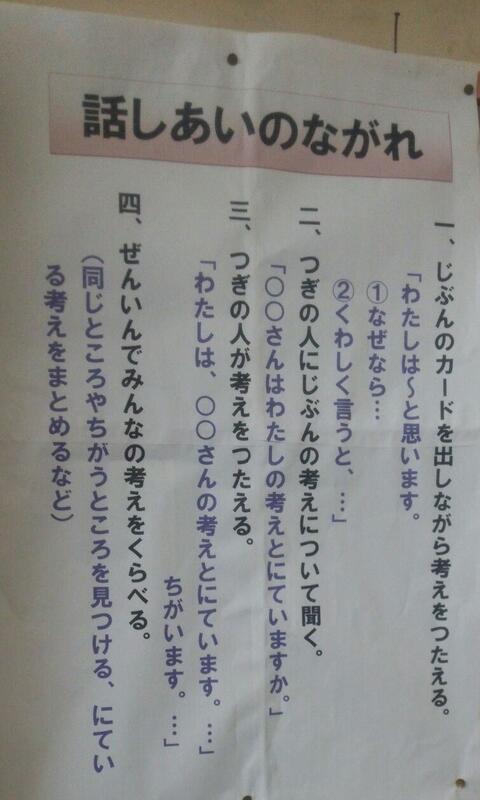 話しあいのながれ
一、じぶんのカードを出しながら考えをつたえる。
「わたしは～と思います。
①なぜなら…
②くわしく言うと、…」
二、つぎの人にじぶんの考えについて聞く。
「〇〇さんはわたしの考えとにていますか。」
三、つぎの人が考えをつたえる。
「わたしは、〇〇さんの考えとにています。…」
ちがいます。…」
四、ぜんいんでみんなの考えをくらべる。
（同じところやちがうところを見つける、にてい
る考えをまとめるなど）